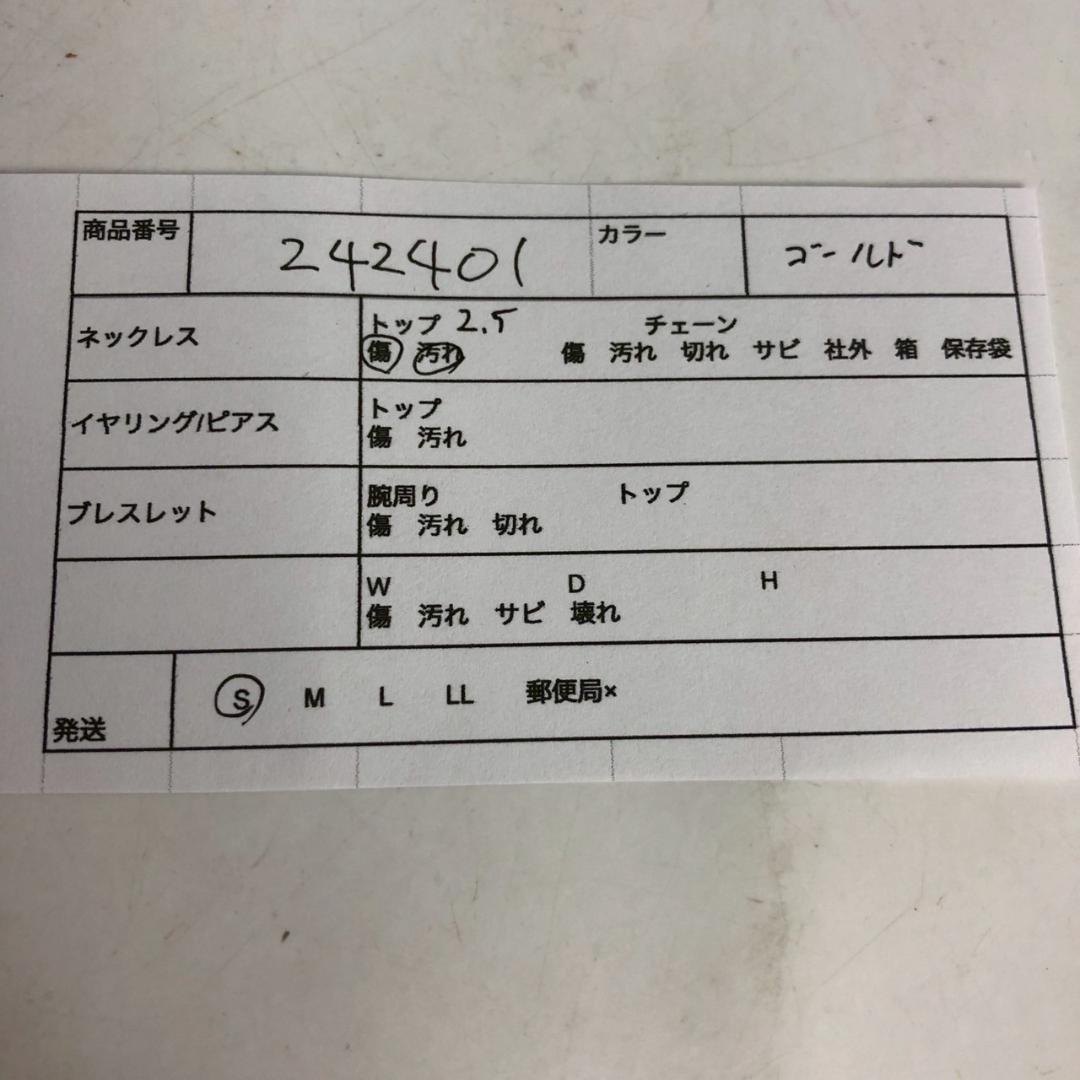 商品番号 242401 カラー ゴールド
ネックレス トップ 2.5 チェーン
傷 汚れ 傷 汚れ 切れ サビ 社外 箱 保存袋
イヤリング/ピアス トップ
傷 汚れ
ブレスレット 腕周り トップ
傷 汚れ 切れ
W D H
傷 汚れ サビ 壊れ
発送 S M L LL 郵便局×